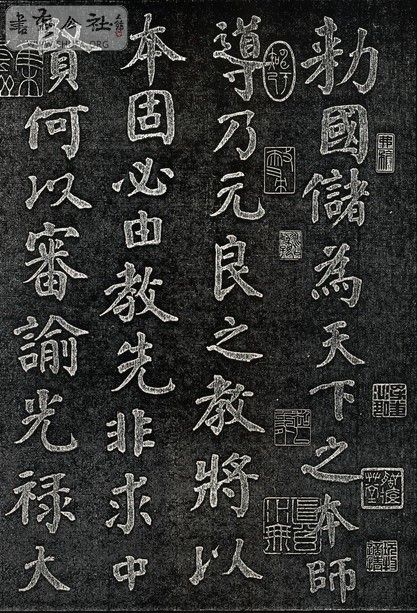 勑國儲為天下之本師
導乃元良之教將以
本固必由教先非求中
賢何以審諭光禄大